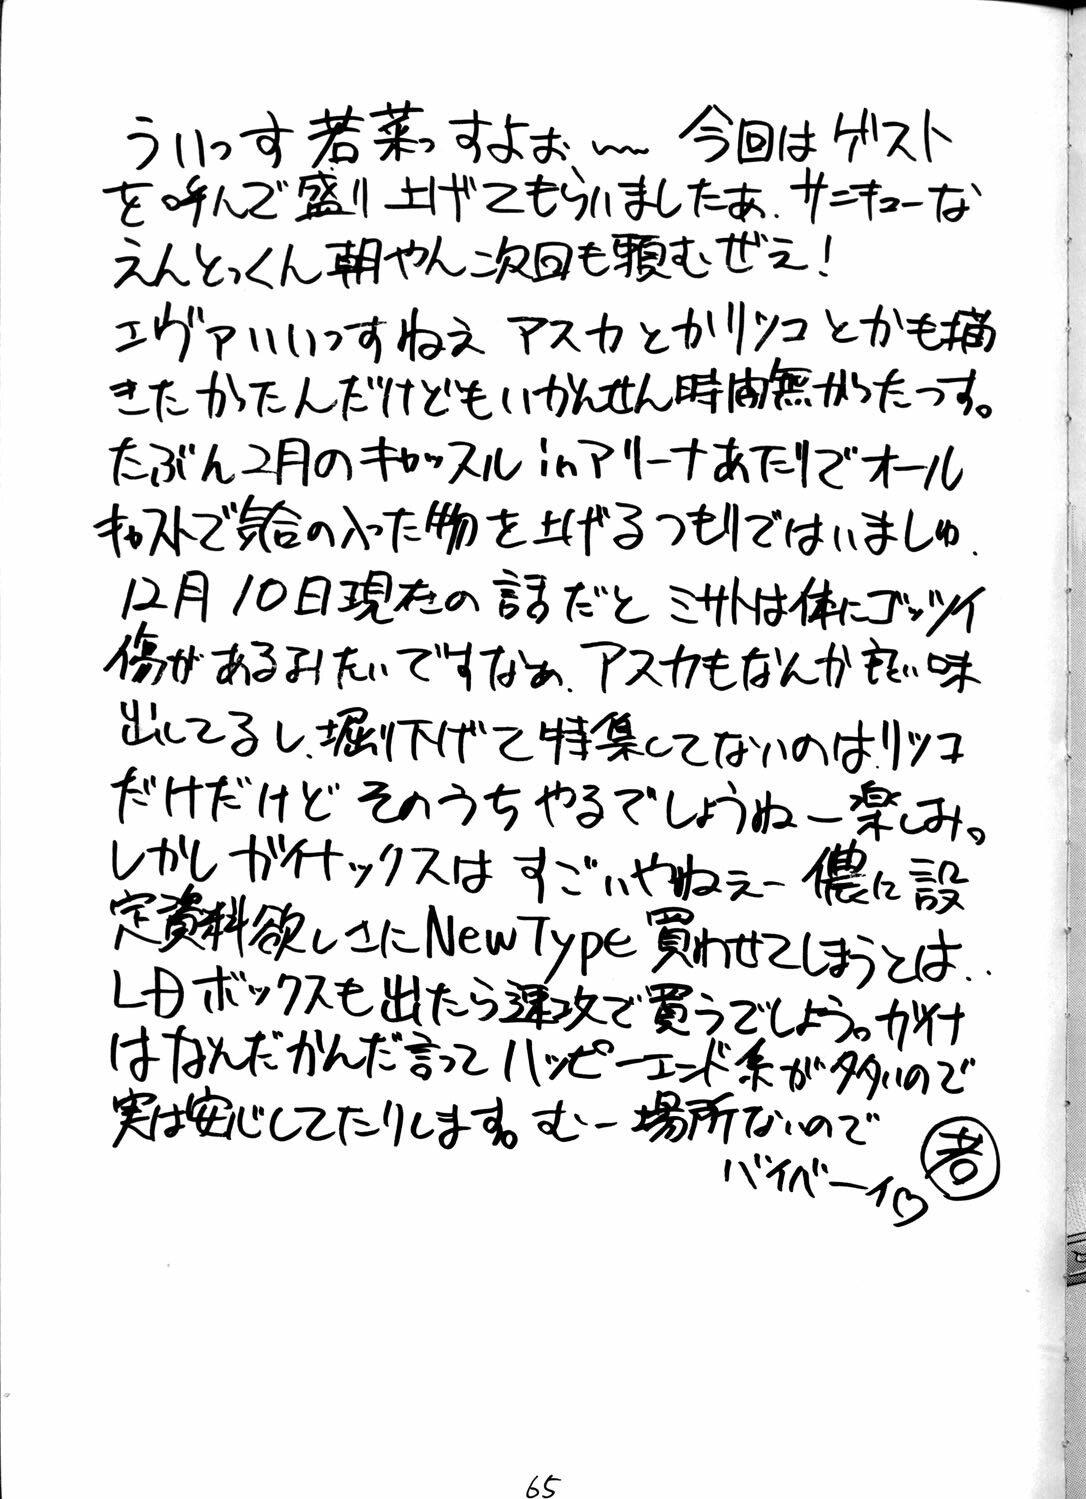 ういっす 若菜っすよぉ、〜 今回は ゲスト
を呼んで盛り上げてもらいましたぁ、サンキューな
えんとっくん朝やん次回も頼むぜえ!
エヴァいいっすねえ アスカとかリツコとかも描
きたかったんだけどもいかんせん時間無かったっす。
たぶん2月のキャッスルinアリーナあたりでオール
キャストで気合の入った物を上げるつもりではいましゅ、
12月10日現在の話だと ミサトは体にゴッツイ
傷があるみたいですなぁ、アスカもなんか良い味
出してるし、堀り下げて特集してないのは、リツコ
だけだけど そのうち やるでしょうねー楽しみ。
しかし ガイナックスは すごいやねぇー 儂に設
定資料欲しさにNewType買わせてしまうとは‥
LDボックスも出たら速攻で買うでしょう。ガイナ
はなんだかんだ言ってハッピーエンド系が多いので
実は安心してたりします。むー場所ないので
バイベーイ♡
若
65